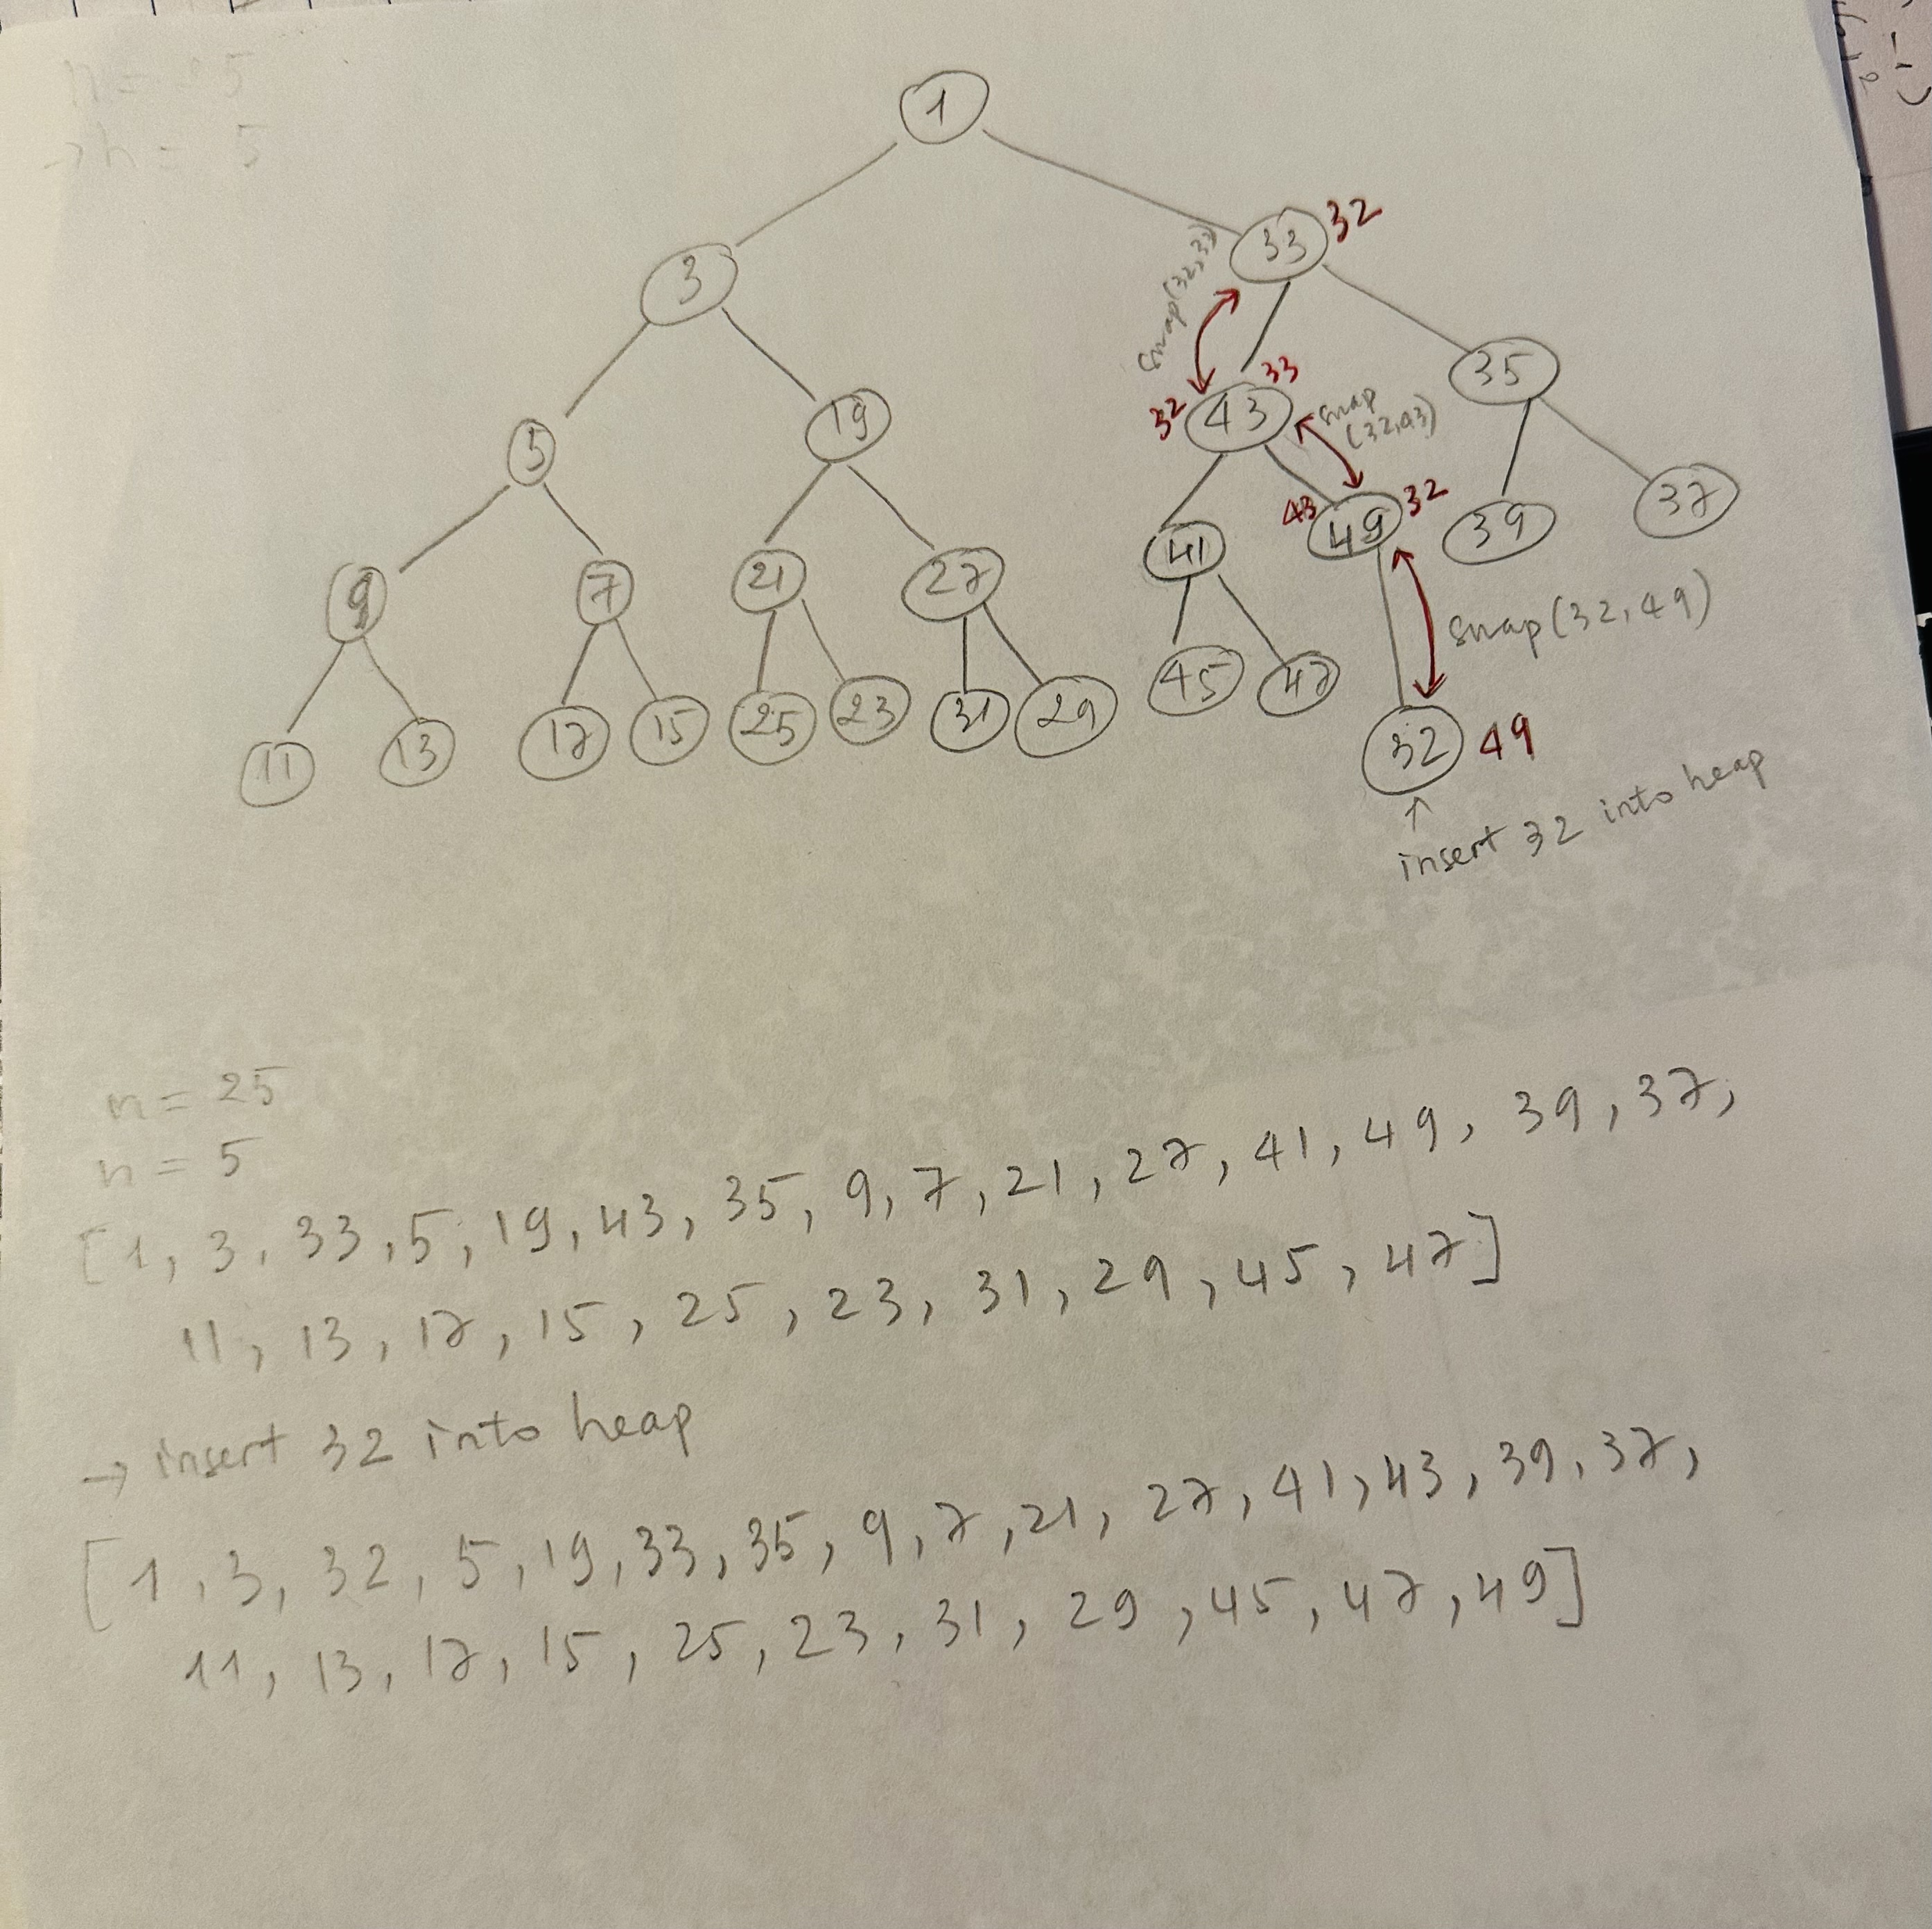 n = 25
→ h = 5
1
33 32
3
swap(32,33)
35
33
32 43
swap
(32,43)
19
5
43 49 32
39
37
9
7
21
27
41
swap(32,49)
45
47
11
13
17
15
25
23
31
29
32 49
↑
insert 32 into heap
n = 25
h = 5
[1, 3, 33, 5, 19, 43, 35, 9, 7, 21, 27, 41, 49, 39, 37,
11, 13, 17, 15, 25, 23, 31, 29, 45, 47]
→ insert 32 into heap
[1, 3, 32, 5, 19, 33, 35, 9, 7, 21, 27, 41, 43, 39, 37,
11, 13, 17, 15, 25, 23, 31, 29, 45, 47, 49]